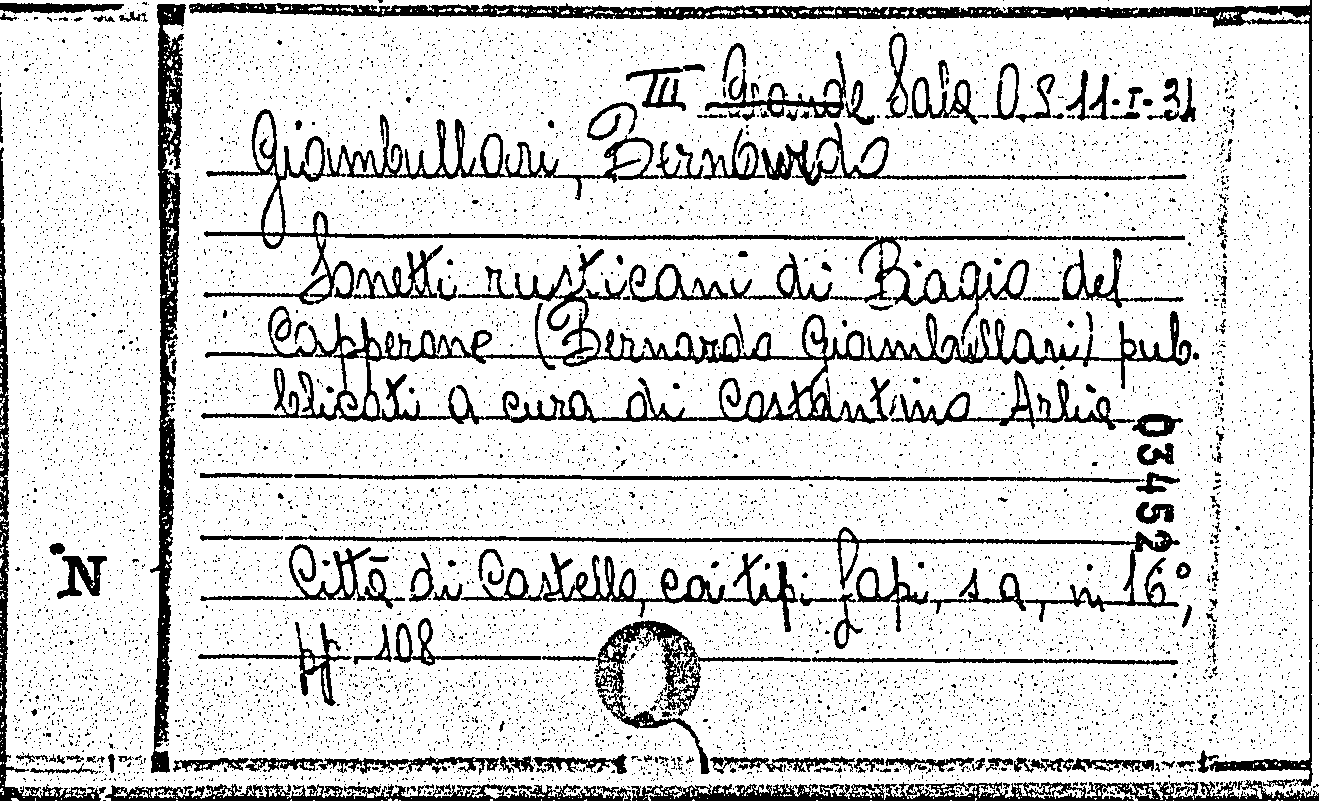 III Grande Sala O.S. 11-I-31
Giambullari, Bernardo
Sonetti rusticani di Biagio del
Capperone (Bernardo Giambullari) pub.
blicati a cura di Costantino Arlia
03452
Città di Castello, coi tipi Lapi, s a, in 16°,
N
pp. 108